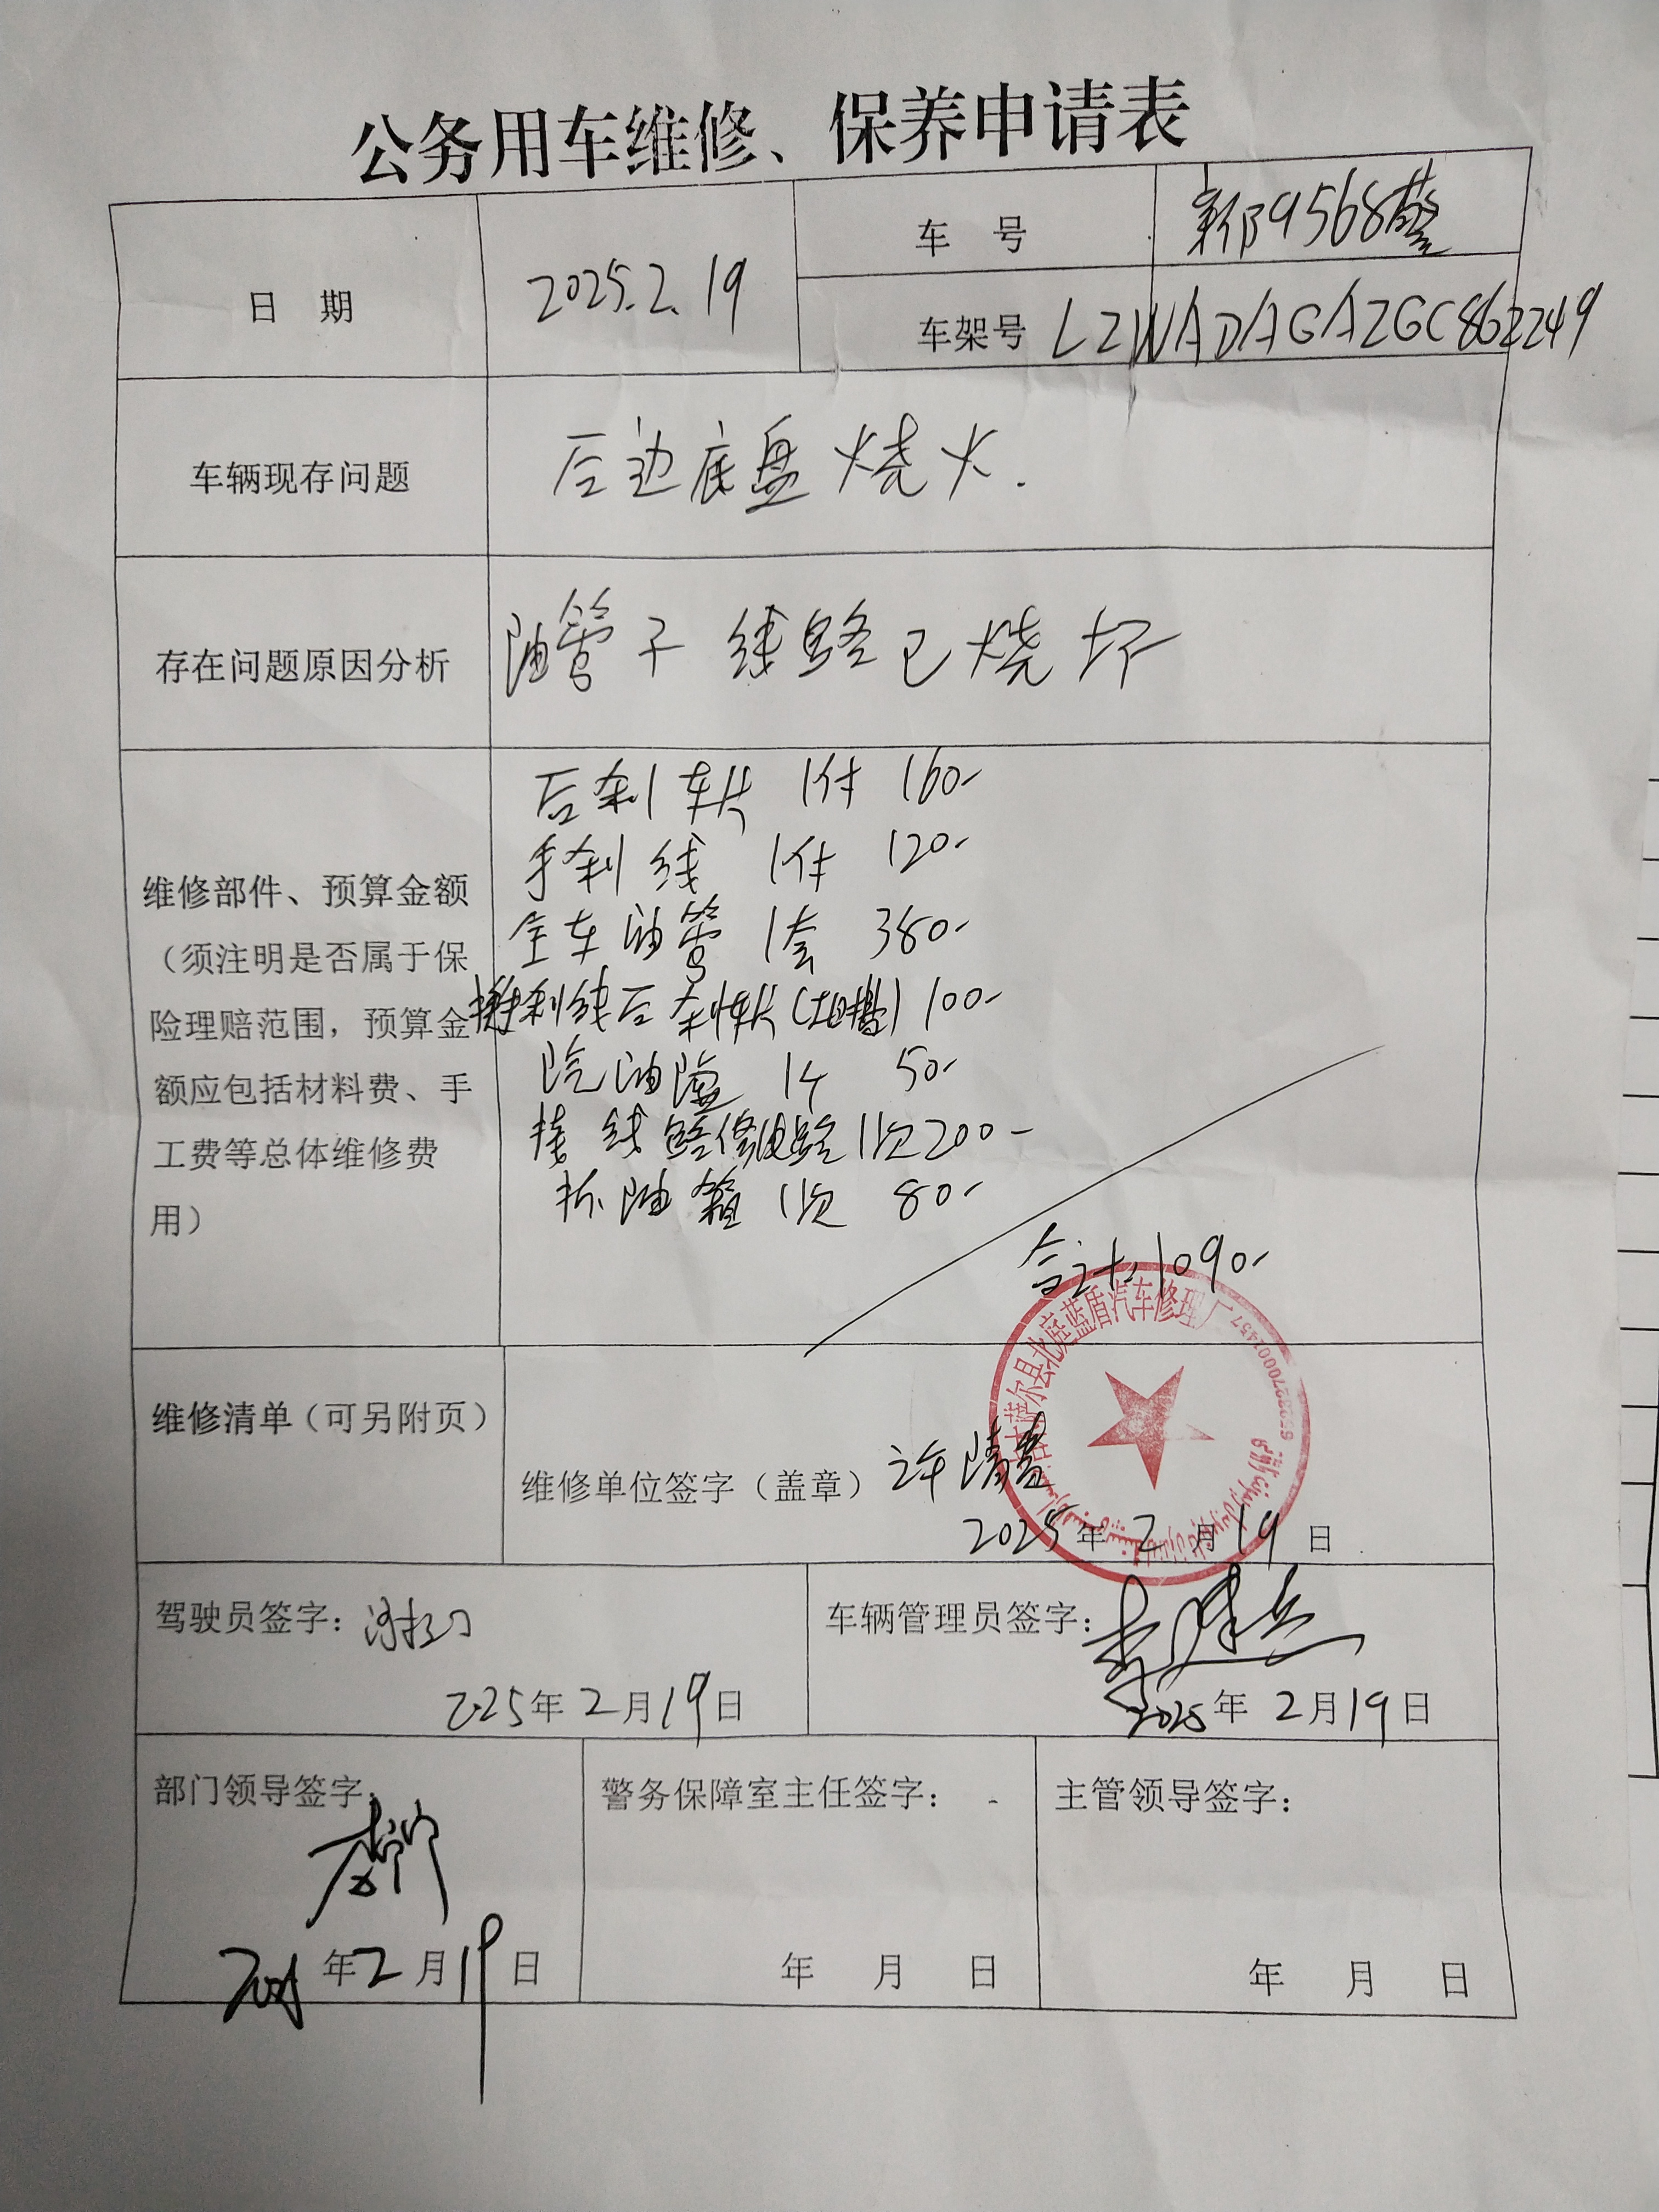 公务用车维修、保养申请表
日 期
2025.2.19
车 号
新B9568警
车架号
LZWADAGAZGC862249
车辆现存问题
后边底盘烧火.
存在问题原因分析
油管子 线路已烧坏
维修部件、预算金额
（须注明是否属于保
险理赔范围，预算金
额应包括材料费、手
工费等总体维修费
用）
后刹车片 1付 160-
手刹线 1付 120-
全车油管 1套 380-
换手刹线后刹车片（工时费）100-
汽油滤 1个 50-
接线路修电路 1次 200-
拆油箱 1次 80-
合计: 1090-
维修清单（可另附页）
维修单位签字（盖章）
2025年2月19日
吉木萨尔县北庭蓝盾汽车修理厂
驾驶员签字：
2025年2月19日
车辆管理员签字：
2025年2月19日
部门领导签字：
2025年2月19日
警务保障室主任签字：
年 月 日
主管领导签字：
年 月 日